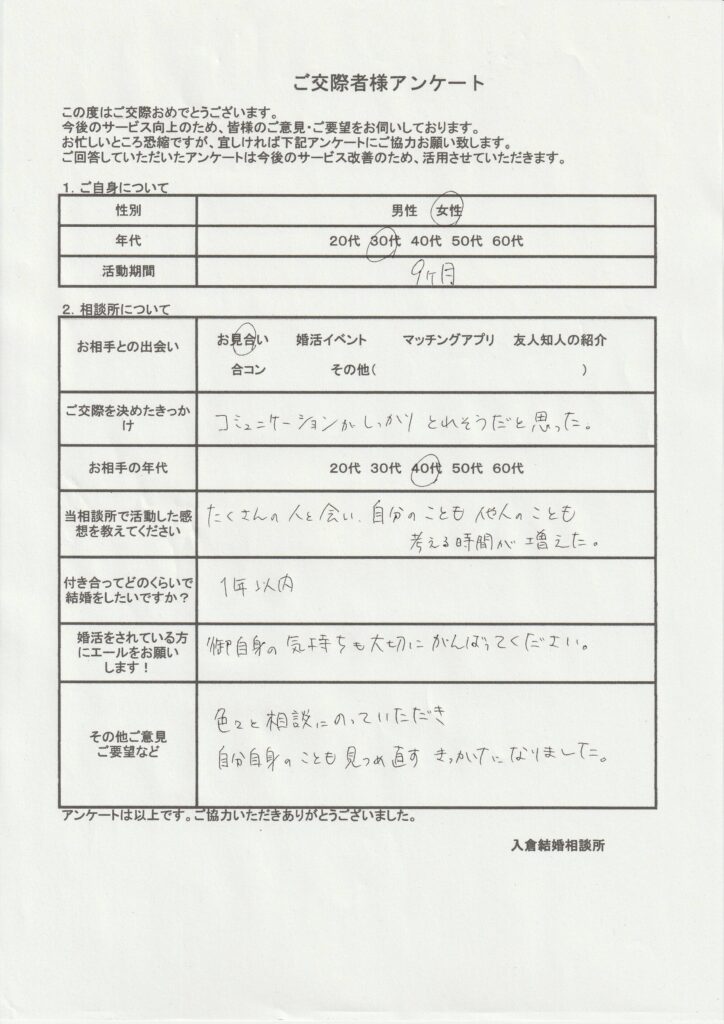 ご交際者様アンケート
この度はご交際おめでとうございます。
今後のサービス向上のため、皆様のご意見・ご要望をお伺いしております。
お忙しいところ恐縮ですが、宜しければ下記アンケートにご協力お願い致します。
ご回答していただいたアンケートは今後のサービス改善のため、活用させていただきます。
1. ご自身について
性別 男性 女性
年代 20代 30代 40代 50代 60代
活動期間 9ヶ月
2. 相談所について
お相手との出会い お見合い 婚活イベント マッチングアプリ 友人知人の紹介
合コン その他( )
ご交際を決めたきっか
け
コミュニケーションがしっかりとれそうだと思った。
お相手の年代 20代 30代 40代 50代 60代
当相談所で活動した感
想を教えてください
たくさんの人と会い、自分のことも他人のことも
考える時間が増えた。
付き合ってどのくらいで
結婚をしたいですか？
1年以内
婚活をされている方
にエールをお願い
します！
御自身の気持ちも大切にがんばってください。
その他ご意見
ご要望など
色々と相談にのっていただき
自分自身のことも見つめ直すきっかけになりました。
アンケートは以上です。ご協力いただきありがとうございました。
入倉結婚相談所